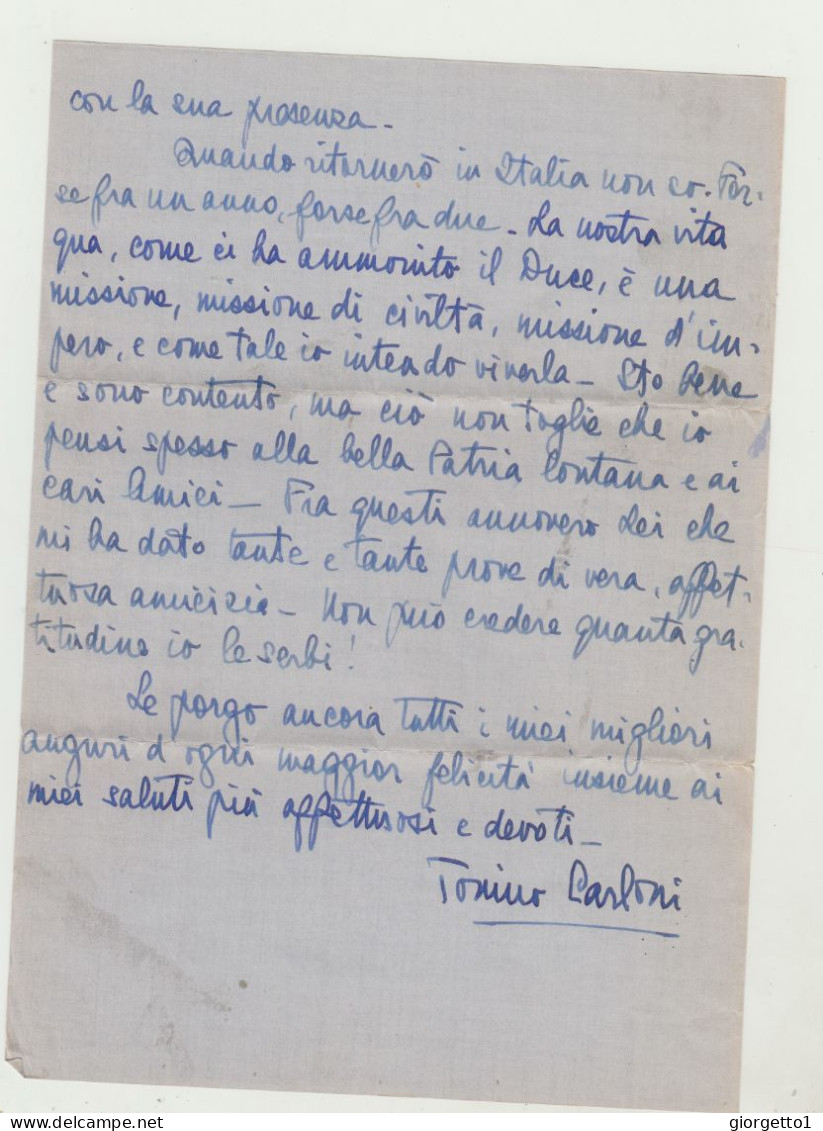 con la sua presenza -
Quando ritornerò in Italia non so. For-
se fra un anno, forse fra due - La nostra vita
qua, come ci ha ammonito il Duce, è una
missione, missione di civiltà, missione d'im-
pero, e come tale io intendo viverla - Sto bene
e sono contento, ma ciò non toglie che io
pensi spesso alla bella Patria lontana e ai
cari Amici - Fra questi annovero Lei che
mi ha dato tante e tante prove di vera, affet-
tuosa amicizia - Non può credere quanta gra-
titudine io le serbi!
Le porgo ancora tutti i miei migliori
auguri d'ogni maggior felicità insieme ai
miei saluti più affettuosi e devoti -
Tonino Carloni
giorgetto1